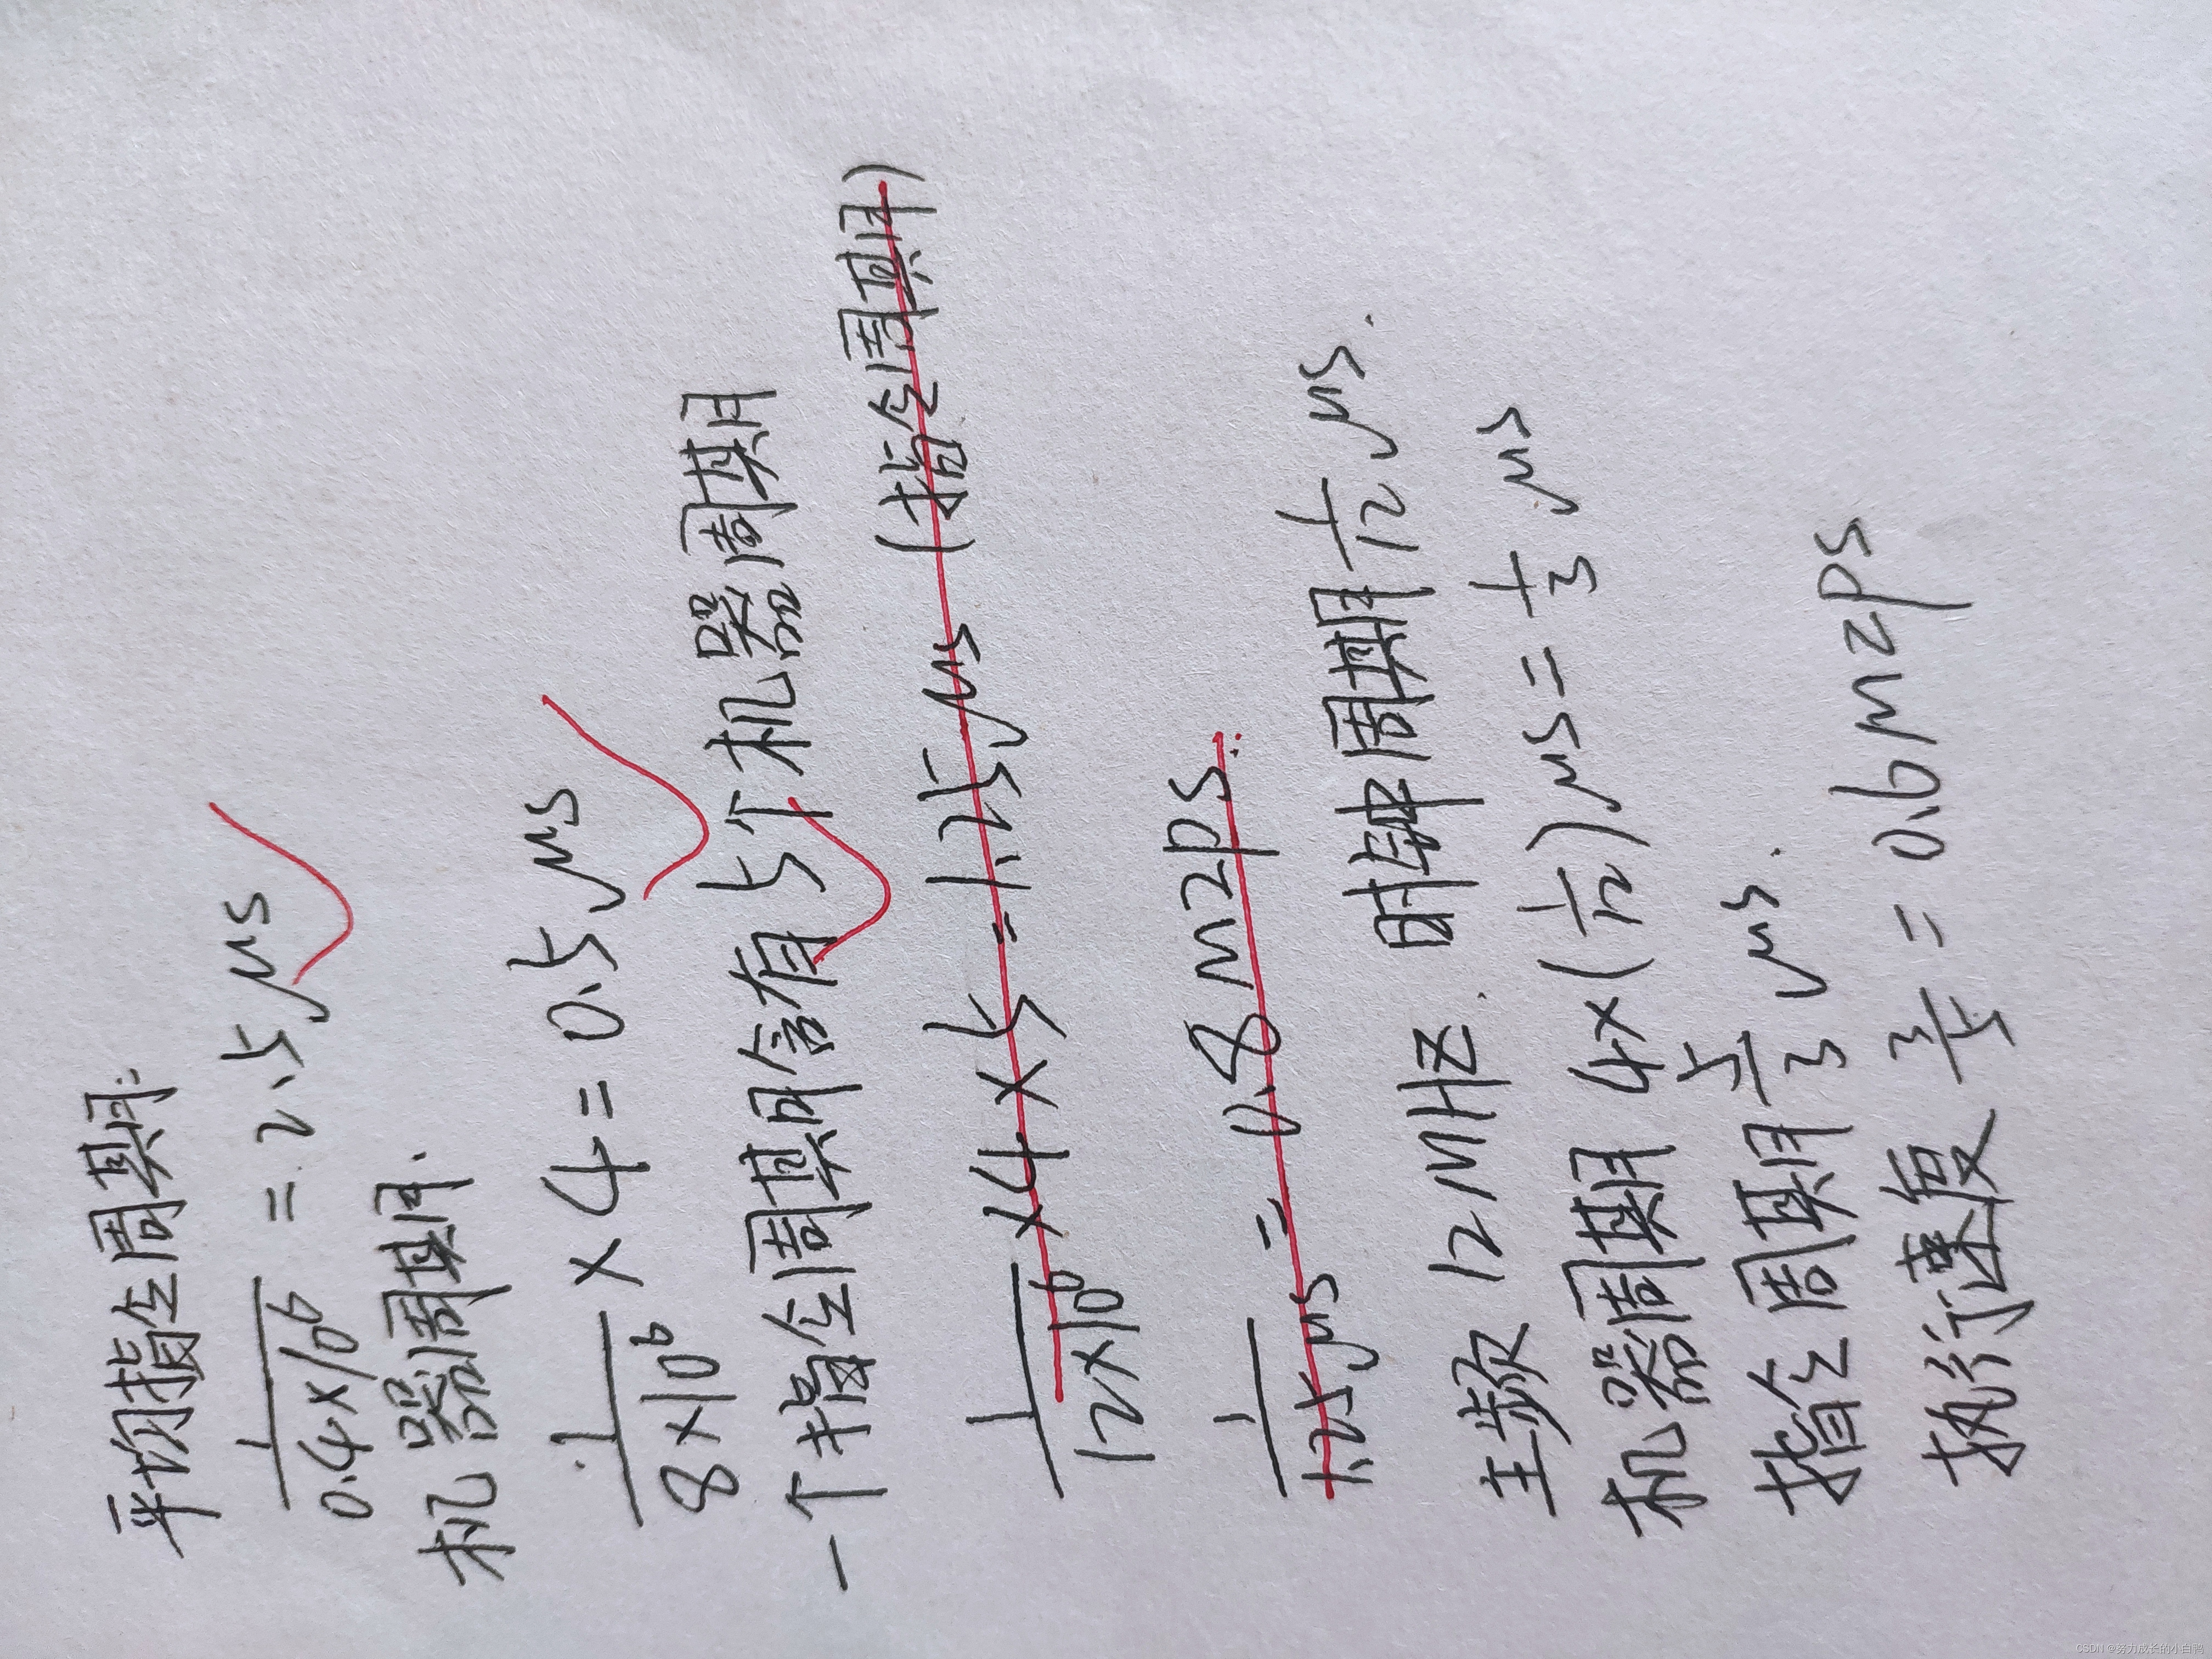 平均指令周期:
1/(0.4×10⁶) = 2.5μs
机器周期.
1/(8×10⁶) ×4=0.5μs
一个指令周期含有5个机器周期
1/(12×10⁶) ×4×5=1.25μs (指令周期)
1/1.25μs = 0.8mzps.
主频 12MHz. 时钟周期 1/12 μs.
机器周期 4×(1/12)μs=1/3 μs
指令周期 5/3 μs.
执行速度 3/5 = 0.6mzps
CSDN @努力成长的小白鸭